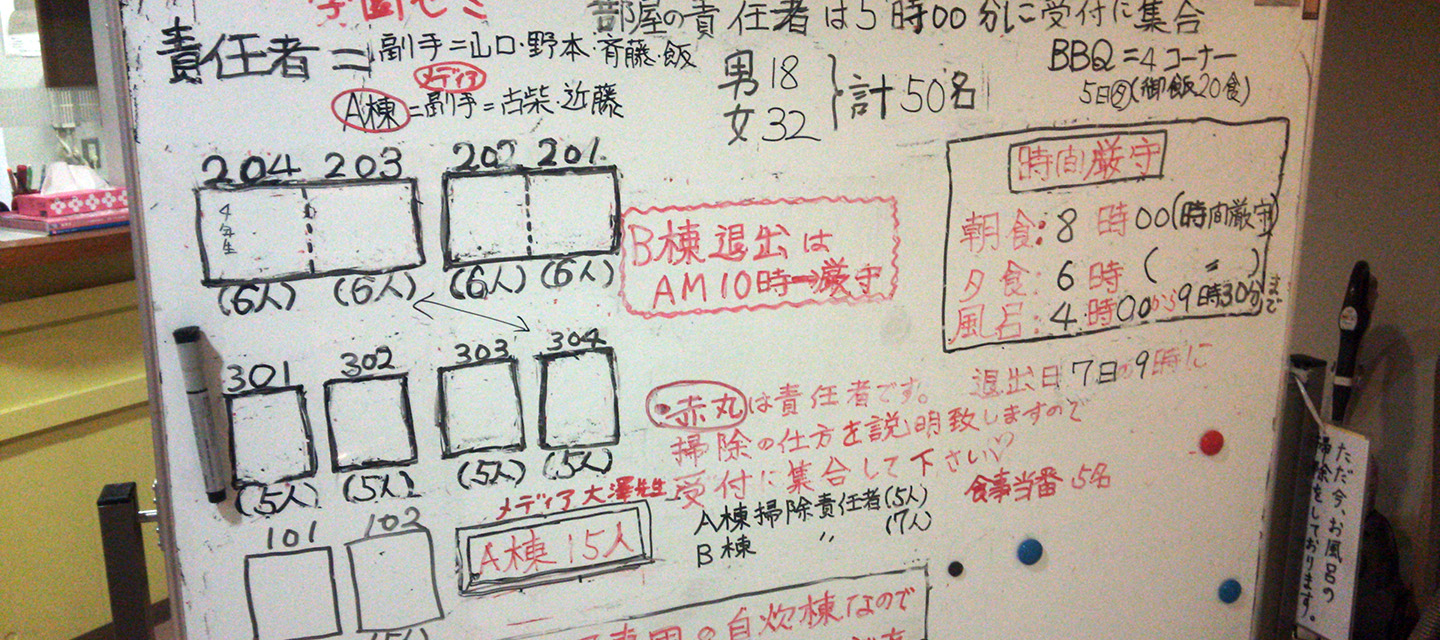 部屋の責任者は5時00分に受付に集合
責任者=副手=山口・野本・斉藤・飯
メディア
A棟=副手=古柴・近藤
男18
女32
計50名
BBQ=4コーナー
5日夕(御飯20食)
時間厳守
朝食:8時00(時間厳守)
夕食:6時( 〃 )
風呂:4時00から9時30分まで
204 203 202 201
4年生
(6人) (6人) (6人) (6人)
B棟退出は
AM10時→厳守
301 302 303 304
(5人) (5人) (5人) (5人)
退出日7日の9時に
・赤丸は責任者です。
掃除の仕方を説明致しますので
受付に集合して下さい♡
食事当番5名
メディア大澤先生
A棟15人
A棟掃除責任者(5人)
B棟 〃 (7人)
101 102
の自炊棟なので
ただ今、お風呂の
掃除をしております。